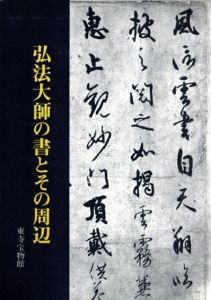 風信雲書自天翔臨
披之閲之如揭雲霧兼
恵止觀妙門頂戴供養
弘法大師の書とその周辺
東寺宝物館